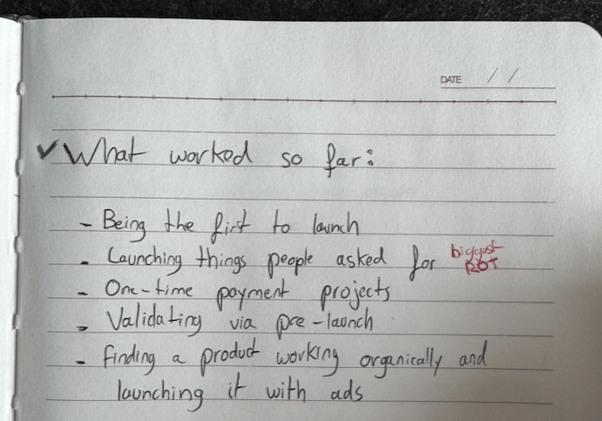 DATE / /
✓ What worked so far:
- Being the first to launch
- Launching things people asked for biggest ROI
- One-time payment projects
- Validating via pre-launch
- finding a product working organically and
launching it with ads